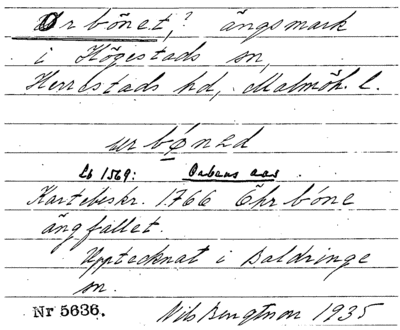 Ørbönet,? ängsmark
i Högestads sn,
Herrestads hd, Malmöh. l.
urbøned
Lb 1569: Orbens aas
Kartebeskr. 1766 Öhrböne
ängfallet.
Upptecknat i Baldringe
sn.
Nr 5636. Nils Bengtson 1935